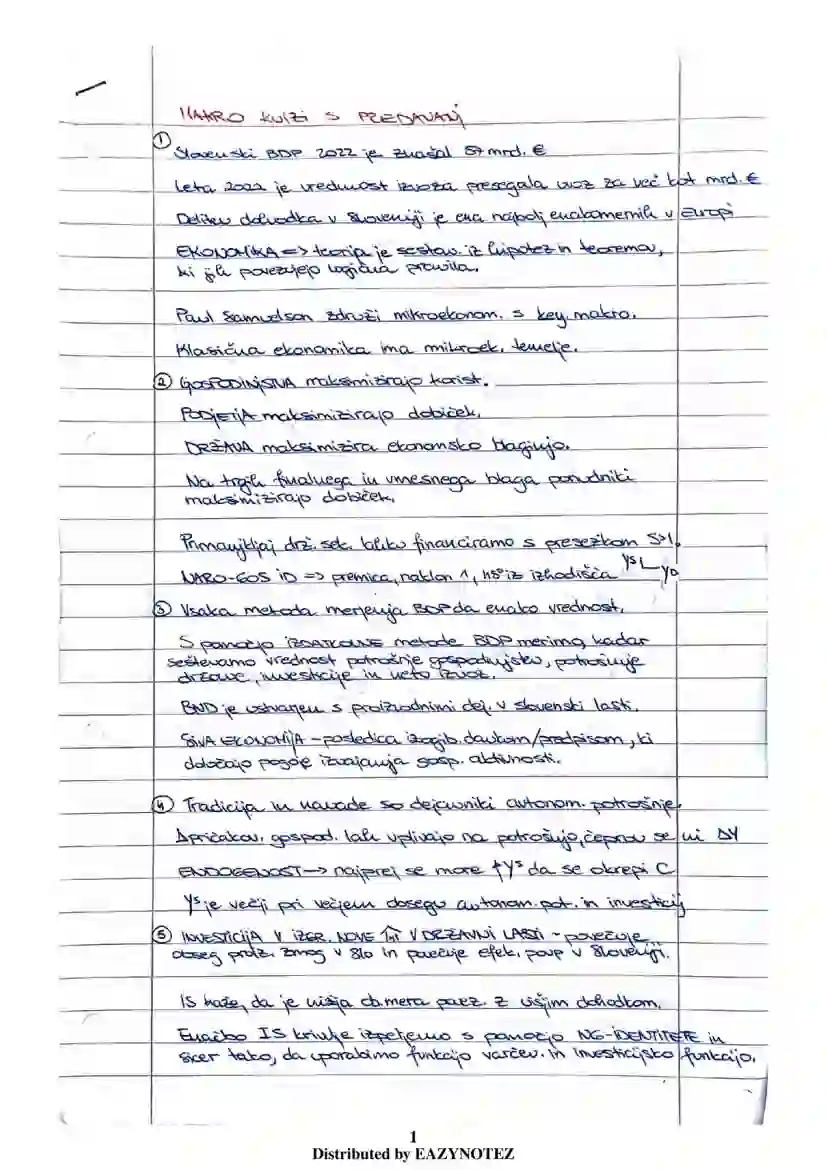 MAKRO kvizi s PREDAVANJ
① Slovenski BDP 2022 je znašal 57 mrd. €
Leta 2022 je vrednost izvoza presegala uvoz za več kot mrd. €
Delitev dohodka v Sloveniji je ena najbolj enakomernih v Evropi
EKONOMIKA => teorija je sestav. iz hipotez in teorema,
ki jih povezujejo logična pravila.
Paul Samuelson združi mikroekonom. s key. makro.
Klasična ekonomika ima mikroek. temelje.
② GOSPODINJSTVA maksimizirajo korist.
PODJETJA maksimizirajo dobiček.
DRŽAVA maksimizira ekonomsko blaginjo.
Na trgih finalnega in vmesnega blaga ponudniki
maksimizirajo dobiček.
Primanjkljaj drž. sek. lahko financiramo s presežkom S>I.
NARO-GOS ID => premica, naklon 1, 45° iz izhodišča YS YD
③ Vsaka metoda merjenja BDP da enako vrednost.
S pomočjo IZDATKOVNE metode BDP merimo, kadar
seštevamo vrednost potrošnje gospodinjstev, potrošnje
države, investicije in neto izvoz.
BND je ustvarjen s proizvodnimi dej. v slovenski lasti.
SIVA EKONOMIJA - posledica izogib. davkom/predpisom, ki
določajo pogoje izvajanja gosp. aktivnosti.
④ Tradicija in navade so dejavniki avtonom. potrošnje.
Δpričakov. gospod. lah vplivajo na potrošnjo, čeprav se ni ΔY
ENDOGENOST -> najprej se more ↑Yˢ da se okrepi C
Yˢ je večji pri večjem obsegu avtonom. pot. in investicij
⑤ INVESTICIJA V IZGR. NOVE V DRŽAVNI LASTI - povečuje
obseg proiz. zmog v Slo in povečuje efek. povp v Sloveniji.
IS kaže, da je nižja ob.mera povez. z višjim dohodkom.
Enačbo IS krivulje izpeljemo s pomočjo NG-IDENTITETE in
sicer tako, da uporabimo funkcijo varčev. in investicijsko funkcijo.
1
Distributed by EAZYNOTEZ